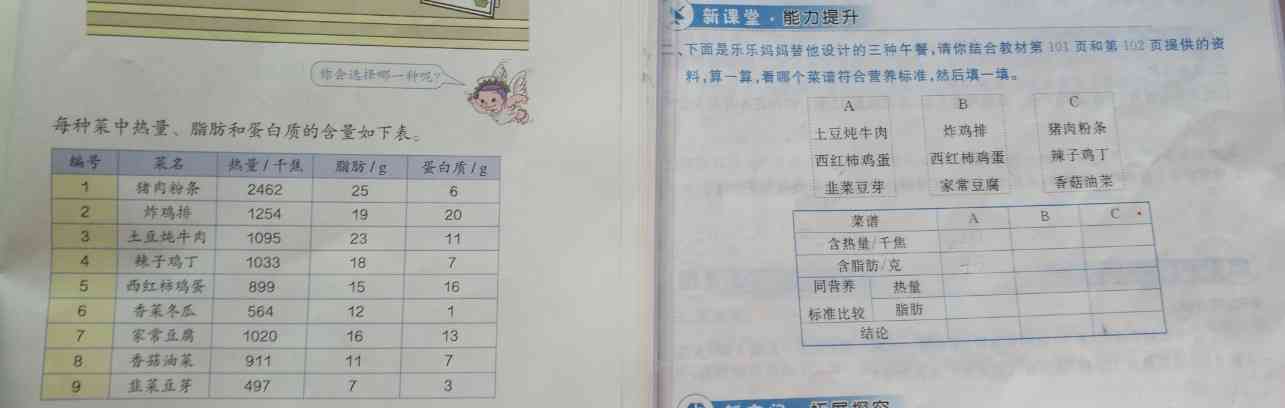 你会选择哪一种呢?
每种菜中热量、脂肪和蛋白质的含量如下表。
编号 菜名 热量/千焦 脂肪/g 蛋白质/g
1 猪肉粉条 2462 25 6
2 炸鸡排 1254 19 20
3 土豆炖牛肉 1095 23 11
4 辣子鸡丁 1033 18 7
5 西红柿鸡蛋 899 15 16
6 香菜冬瓜 564 12 1
7 家常豆腐 1020 16 13
8 香菇油菜 911 11 7
9 韭菜豆芽 497 7 3
新课堂·能力提升
二、下面是乐乐妈妈替他设计的三种午餐,请你结合教材第 101 页和第 102 页提供的资
料,算一算,看哪个菜谱符合营养标准,然后填一填。
A B C
土豆炖牛肉 炸鸡排 猪肉粉条
西红柿鸡蛋 西红柿鸡蛋 辣子鸡丁
韭菜豆芽 家常豆腐 香菇油菜
菜谱 A B C
含热量/千焦
含脂肪/克
同营养 热量
标准比较 脂肪
结论